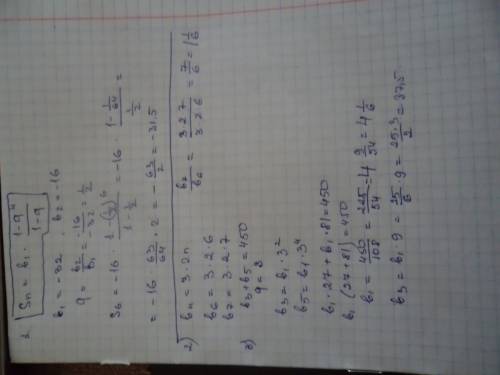 1. Sn = b₁ · (1-qⁿ)/(1-q)
b₁ = -32 b₂ = -16
q = b₂/b₁ = -16/-32 = 1/2
S₆ = -16 · (1-(1/2)⁶)/(1-1/2) = -16 · (1-1/64)/(1/2) =
= -16 · 63/64 · 2 = -63/2 = -31.5
2) bn = 3·2n
b₆ = 3·2·6
b₇ = 3·2·7
b₇/b₆ = (3·2·7)/(3·2·6) = 7/6 = 1 1/6
3) b₃+b₅ = 450
q = 3
b₃ = b₁·3²
b₅ = b₁·3⁴
b₁·27 + b₁·81 = 450
b₁(27+81) = 450
b₁ = 450/108 = 225/54 = 4 9/54 = 4 1/6
b₃ = b₁·9 = 25/6 · 9 = (25·3)/2 = 37,5